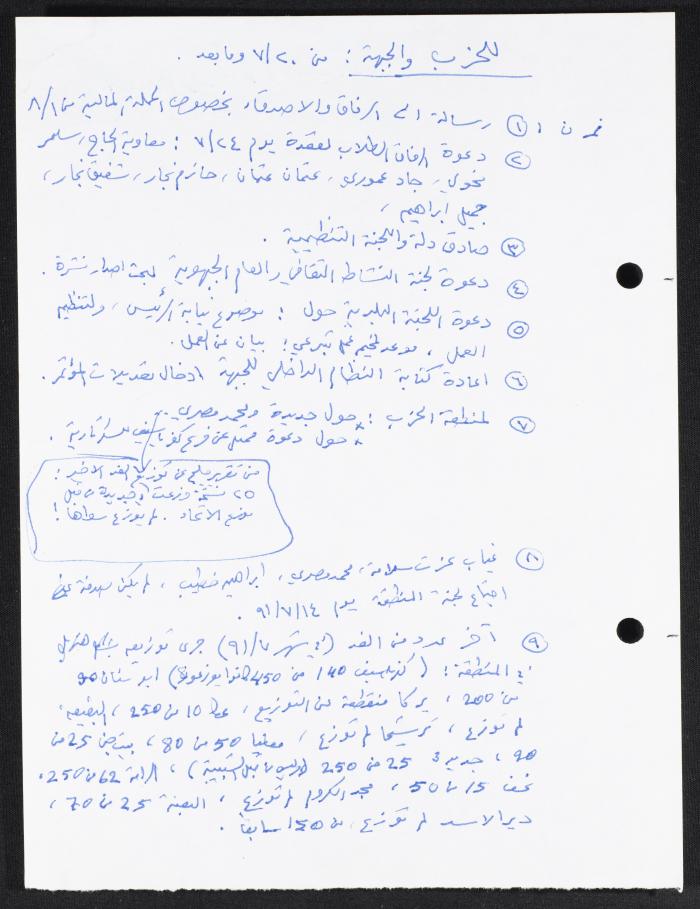 للحزب والجبهة : من ٧/٢٠ وما بعد .
① رسالة الى الرفاق والاصدقاء بخصوص الحملة المالية من ٨/١
② دعوة الرفاق الطلاب لعقدة يوم ٧/٢٤ : معاوية الحاج ، سمر
نحوي ، جاد عموري ، عثمان عثمان ، حازم نجار ، شفيق نجار ،
جميل ابراهيم ،
③ صادق دلة واللجنة التنظيمية .
④ دعوة لجنة النشاط الثقافي والعام الجبهوية لبحث اصدار نشرة .
⑤ دعوة اللجنة البلدية حول : موضوع نيابة الرئيس ، ولتنظيم
العمل ، موعد مخيم عمل تبرعي ؛ بيان عن العمل .
⑥ اعادة كتابة النظام الداخلي للجبهة وادخال تعديلات المؤتمر .
⑦ لمنطقة الحزب : حول جديدة ومحمد مصري .
* حول دعوة ممثل عن فرع كفرياسيف للسكرتارية .
من تقرير ملحم عن توزيع الغد الاخير :
٢٥ نسخة وزعت في جديدة من قبل
موزع الاتحاد . لم يوزع سواها !
⑧ غياب عزت سلامة ، محمد مصري ، ابراهيم خطيب ، لم يكن صدفة عن
اجتماع لجنة المنطقة يوم ٩١/٧/١٤ .
⑨ آخر عدد من الغد (في شهر ٩١/٧) جرى توزيعه بشكل هزيل
في المنطقة : (كفرياسيف 140 من 450 كانوا يوزعون) ابو سنان 90
من 200 ، يركا منقطعة عن التوزيع ، عكا 10 من 250 ، البقيعة
لم توزع ، ترشيحا لم توزع ، معليا 50 من 80 ، بيت جن 25 من
90 ، جديدة 25 من 250 (وليس من قبل الشبيبة) ، الرامة 62 من 250 ،
نحف 15 من 50 ، مجد الكروم لم توزع ، البعنة 25 من 70 ،
دير الاسد لم توزع من 150 سابقا .